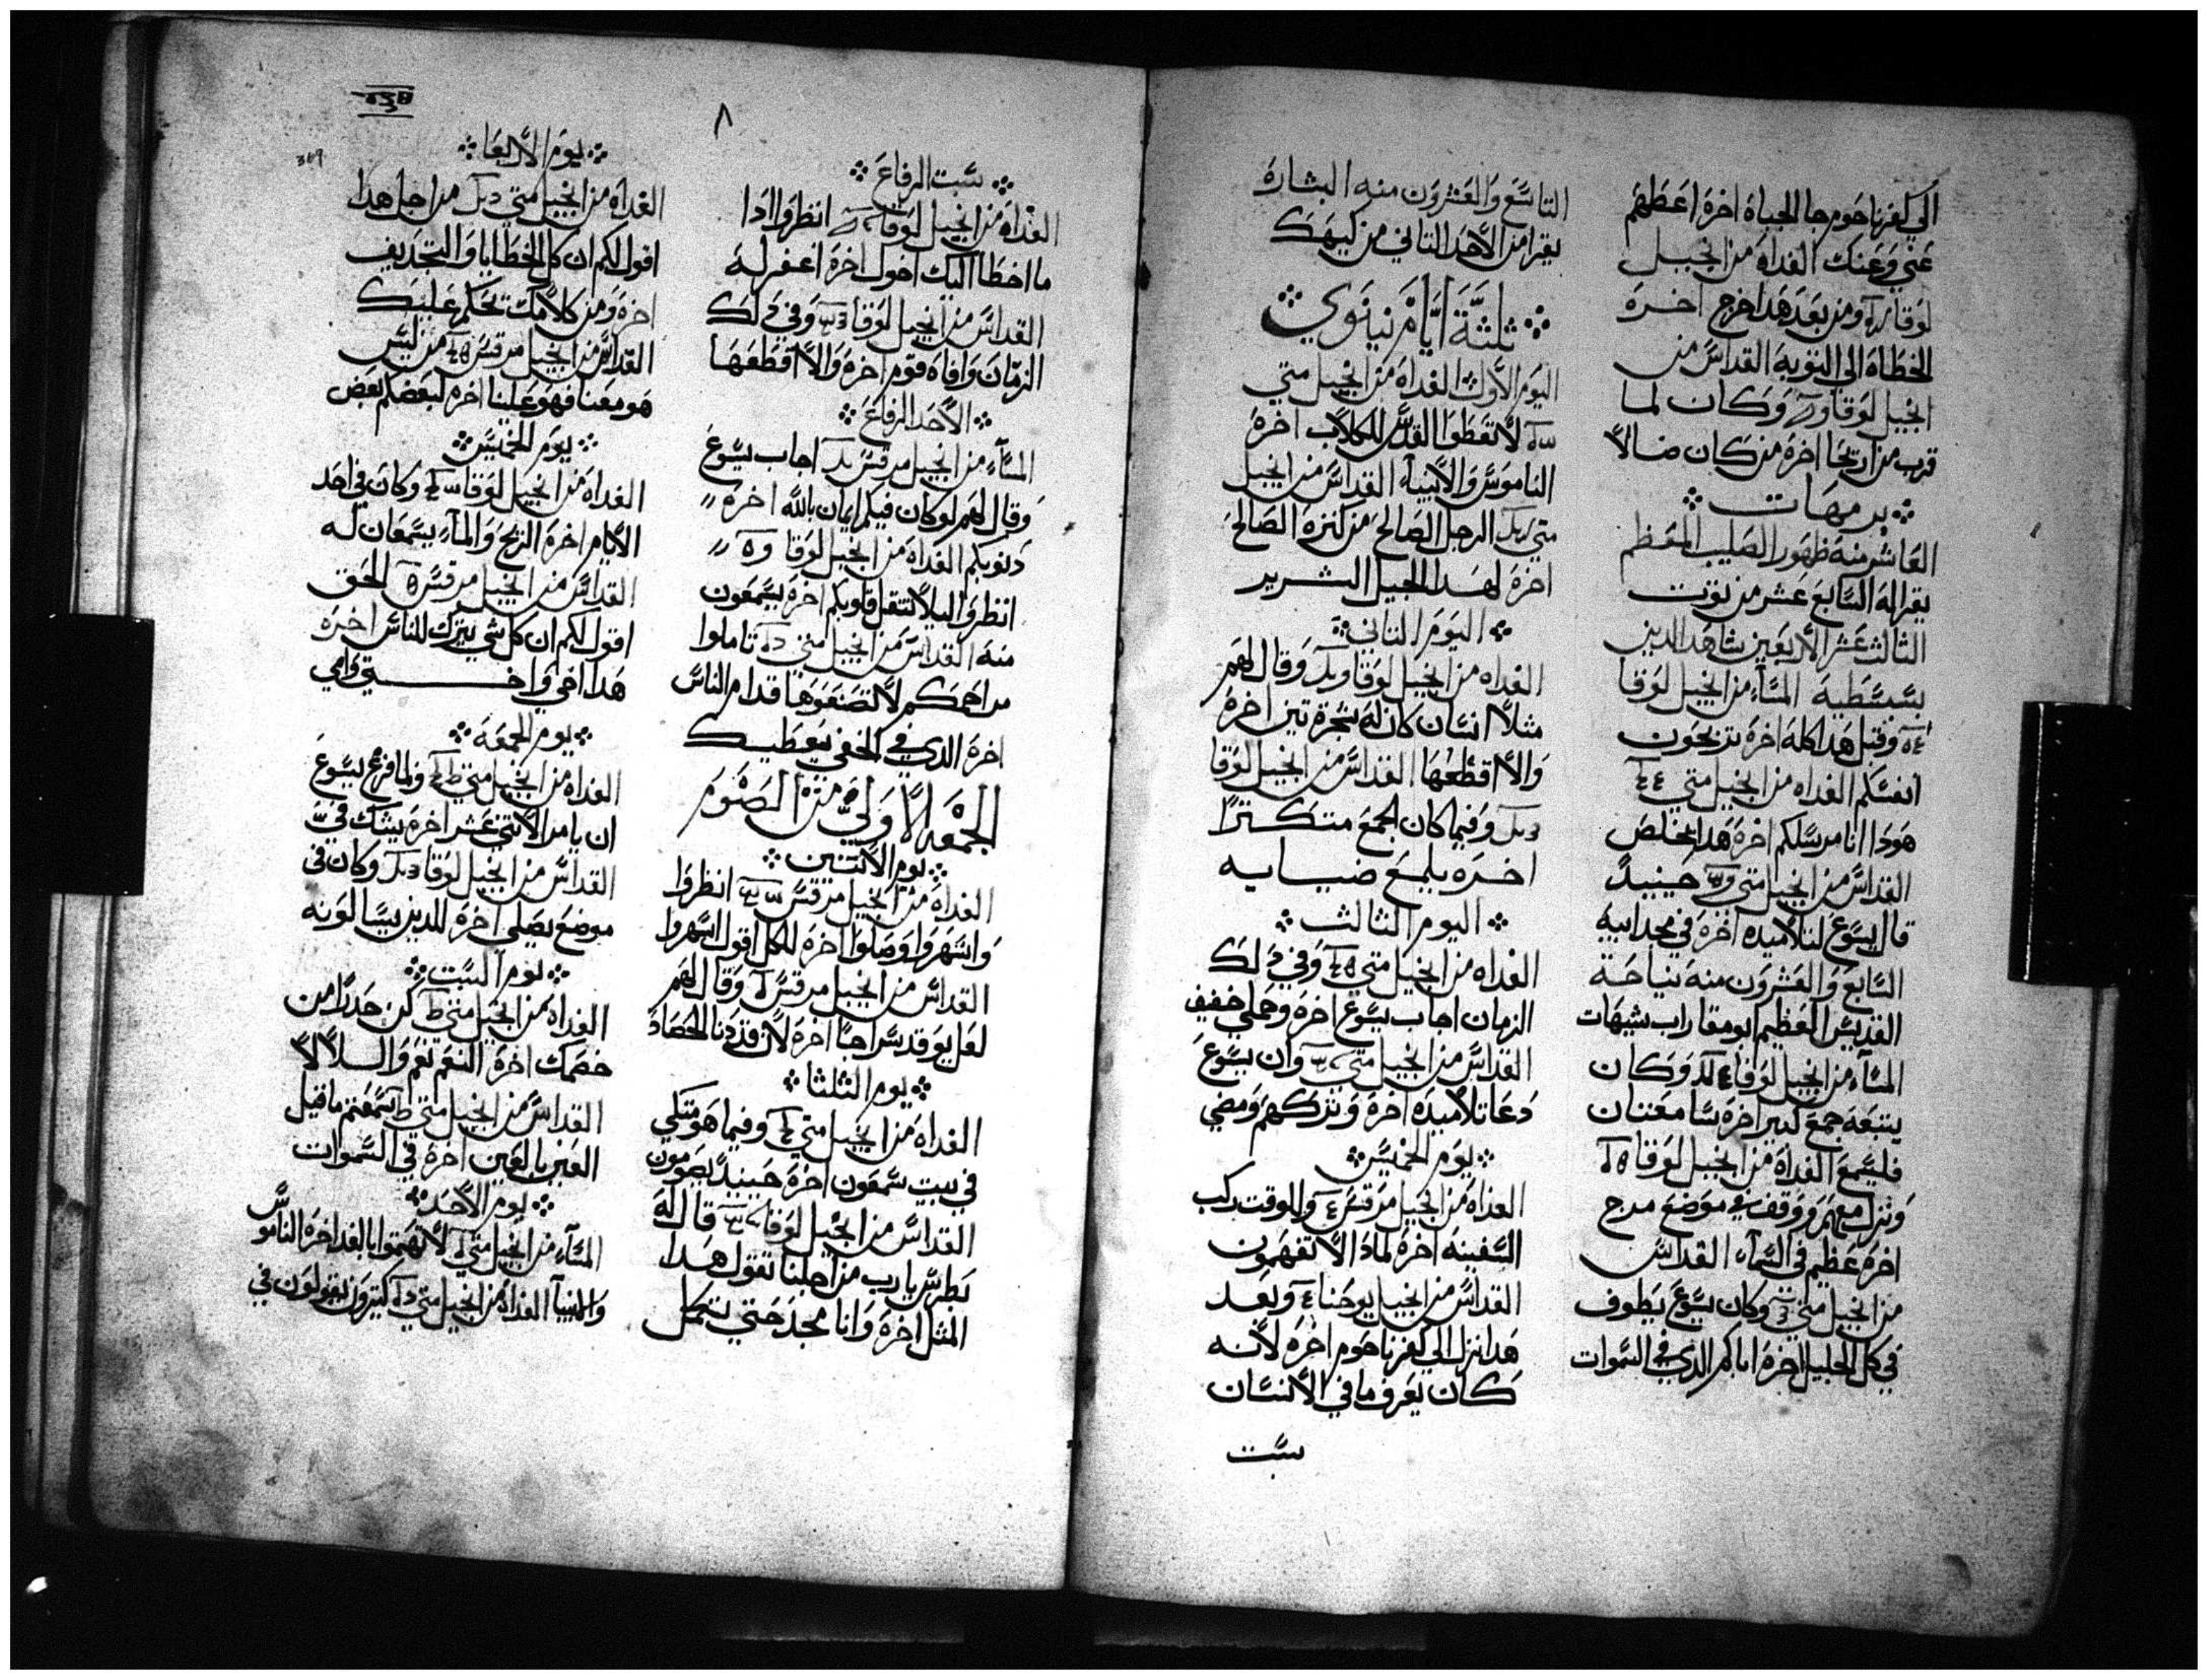 الي كفرناحوم جا الجباة اخره اعطهم
عني وعنك الغداه من انجيل
لوقا ومن بعد هدا خرج اخره
الخطاه الي التوبه القداس من
انجيل لوقا وكان لما
قرب من اريحا اخره من كان ضالا
برمهات
العاشر منه ظهور الصليب المعظم
يقرا له السابع عشر من توت
الثالث عشر الاربعين شاهد الدين
بسبسطيه المساء من انجيل لوقا
وقبل هدا كله اخره تربحون
انفسكم الغداه من انجيل متي
هودا انا مرسلكم اخره هدا يخلص
القداس من انجيل متي حينيد
قال يسوع لتلاميده اخره في مجد ابيه
السابع والعشرون منه نياحة
القديس العظيم ابو مقار اب شيهات
المساء من انجيل لوقا وكان
يتبعه جمع كبير اخره سامعتان
فليسمع الغداه من انجيل لوقا
ونزل معهم ووقف في موضع مرج
اخره عظيم في السماء القداس
من انجيل متي وكان يسوع يطوف
في كل الجليل اخره اباكم الدي في السموات
التاسع والعشرون منه البشارة
يقرا من الاحد التاني من كيهك
ثلثة ايام نينوي
اليوم الاول الغداه من انجيل متي
لا تعطوا القدس للكلاب اخره
الناموس والانبياء القداس من انجيل
متي الرجل الصالح من كنزه الصالح
اخره لهدا الجيل الشرير
اليوم التاني
الغداه من انجيل لوقا وقال لهم
مثلا انسان كان له شجرة تين اخره
والا اقطعها القداس من انجيل لوقا
وفيما كان الجمع متكترا
اخره يلمع ضيايه
اليوم الثالث
الغداه من انجيل متي وفي دلك
الزمان اجاب يسوع اخره وحملي خفيف
القداس من انجيل متي وان يسوع
دعا تلاميده اخره وتركهم ومضي
يوم الخميس
الغداه من انجيل مرقس وللوقت ركب
السفينه اخره لمادا لا تفهمون
القداس من انجيل يوحنا وبعد
هدا نزل الي كفرناحوم اخره لانه
كان يعرف ما في الانسان
سبت
٨
سبت الرفاع
الغداه من انجيل لوقا انظروا ادا
ما اخطا اليك اخوك اخره اغفر له
القداس من انجيل لوقا وفي دلك
الزمان وافاه قوم اخره والا اقطعها
الاحد الرفاع
المساء من انجيل مرقس اجاب يسوع
وقال لهم لو كان فيكم ايمان بالله اخره
دنوبكم الغداه من انجيل لوقا
انظروا ليلا تتقل قلوبكم اخره يسمعون
منه القداس من انجيل متي تاملوا
مراحمكم لا تصنعوها قدام الناس
اخره الدي في الخفي يعطيك
الجمعه الاولي من الصوم
يوم الاتنين
الغداه من انجيل مرقس انظروا
واسهروا وصلوا اخره للكل اقول اسهروا
القداس من انجيل مرقس وقال لهم
لعل يوقد سراجا اخره لان قد دنا الحصاد
يوم الثلثا
الغداه من انجيل متي وفيما هو متكي
في بيت سمعون اخره حينيد يصومون
القداس من انجيل لوقا قال له
بطرس يارب من اجلنا تقول هدا
المثل اخره وانا مجد حتي يتكمل
369
يوم الاربعا
الغداه من انجيل متي من اجل هدا
اقول لكم ان كل الخطايا والتجديف
اخره ومن كلامك تحكم عليك
القداس من انجيل مرقس من ليس
هو معنا فهو علينا اخره لبعضكم بعض
يوم الخميس
الغداه من انجيل لوقا وكان في احد
الايام اخره الريح والماء يسمعان له
القداس من انجيل مرقس الحق
اقول لكم ان كل شي يترك للناس اخره
هدا اخي واختي وامي
يوم الجمعه
الغداه من انجيل متي ولما فرغ يسوع
ان يامر الاتني عشر اخره يشك في
القداس من انجيل لوقا وكان في
موضع يصلي اخره للدين يسالونه
يوم السبت
الغداه من انجيل متي كن حدرا من
خصمك اخره النعم نعم واللا لا
القداس من انجيل متي سمعتم ما قيل
العين بالعين اخره في السموات
يوم الاحد
المساء من انجيل متي لا تهتموا بالغد اخره الناموس
والانبيا الغداه من انجيل متي كتيرون يقولون في